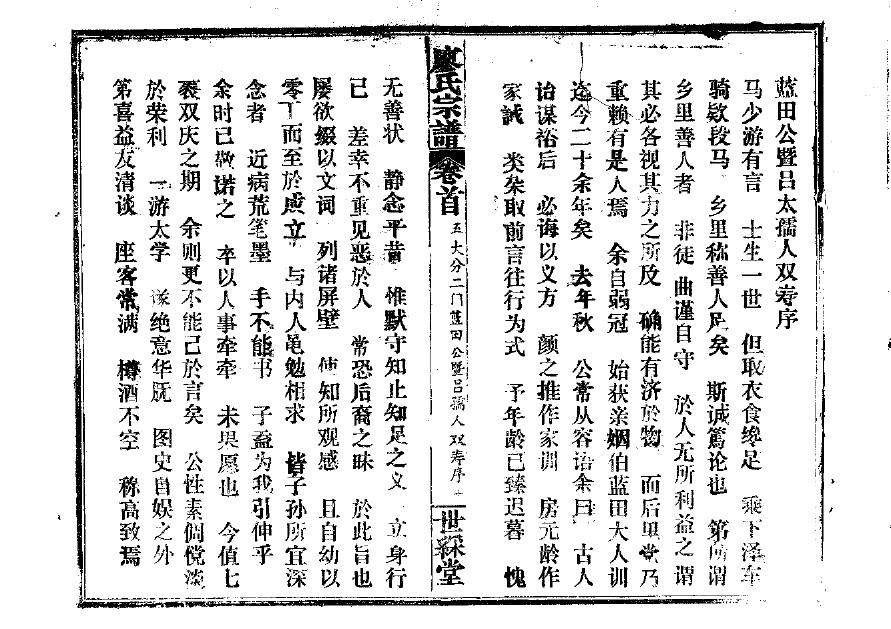 蓝田公暨吕太孺人双寿序
马少游有言 士生一世 但取衣食缘足 乘下泽车
骑欵段马 乡里称善人足矣 斯诚篤论也 第所谓
乡里善人者 非徒曲谨自守 於人无所利益之谓
其必各视其力之所及 确能有济於物 而后里党乃
重赖有是人焉 余自弱冠 始获亲姻伯蓝田大人训
迄今二十余年矣 去年秋 公常从容语余曰 古人
诒谋裕后 必诲以义方 颜之推作家训 房元龄作
家诫 类枀取前言往行为式 予年龄已臻迟暮 愧
廖氏宗譜 卷首 五大分二门蓝田公暨吕孺人双寿序 世綵堂
无善状 静念平昔 惟默守知止知足之义 立身行
己 差幸不重见恶於人 常恐后裔之昧 於此旨也
屡欲缀以文词 列诸屏壁 使知所观感 且自幼以
零丁而至於成立 与内人黾勉相求 皆子孙所宜深
念者 近病荒笔墨 手不能书 子盍为我引伸乎
余时已敬诺之 卒以人事牵牵 未果愿也 今值七
袠双庆之期 余则更不能已於言矣 公性素倜傥淡
於荣利 一游太学 遂绝意华朊 图史自娱之外
第喜益友清谈 座客常满 樽酒不空 称高致焉